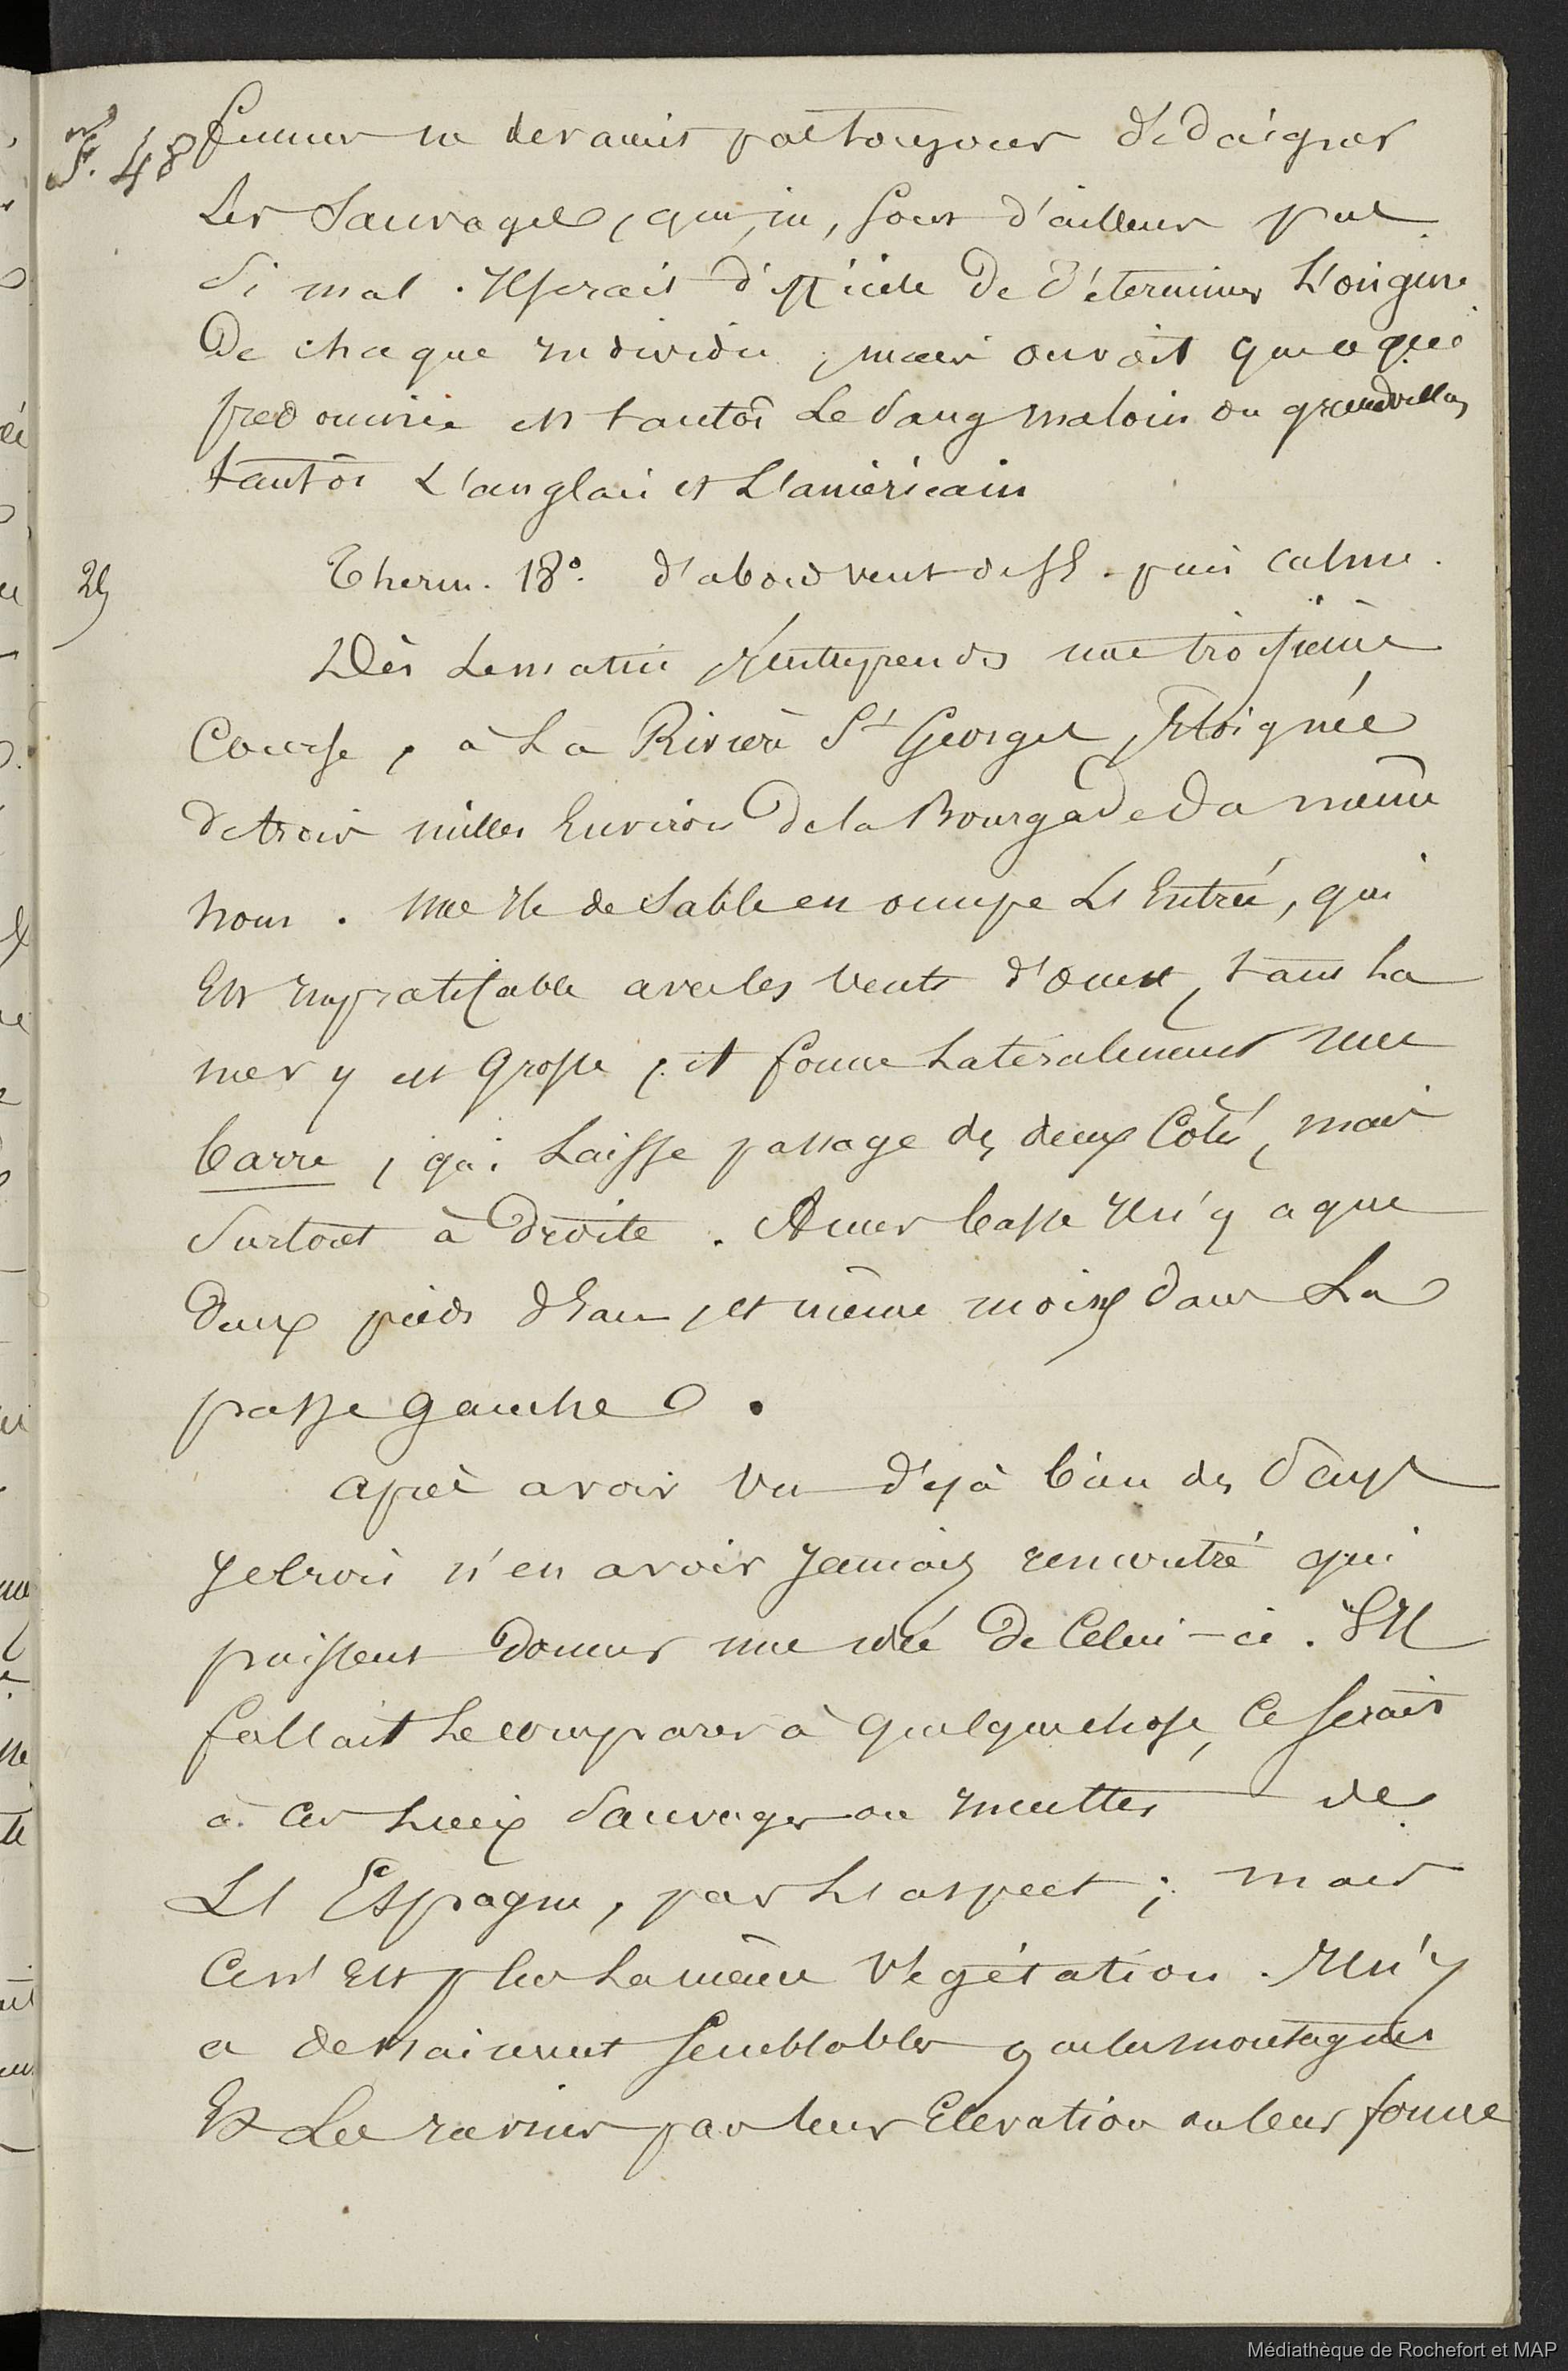 F. 48
femmes ne devaient pas toujours dédaigner
Les Sauvages, qui, ici, sont d'ailleurs pas
Si mal. Il serait difficile De déterminer L'origine
De chaque individu, mais on voit que ce qui
predomine est tantôt Le Sang malouin ou grandvillais
tantôt L'anglais et L'américain
29
Therm. 18°. d'abord vent de SE. puis calme.
Dès Le matin J'entreprends une troisième
Course, à La Rivière St Georges, Eloignée
de trois milles Environ De la Bourgade Du même
nom. une Ile de Sable en occupe L'Entrée, qui
Est Impraticable avec les vents d'ouest, tant La
mer y est Grosse, et forme Latéralement une
barre, qui Laisse passage des deux Côtés, mais
Surtout à Droite. A mer basse Il n'y a que
Deux pieds d'Eau, et même moins dans La
passe Gauche.
après avoir vu déjà bien des Pays
Je crois n'en avoir Jamais rencontré qui
puissent Donner une idée De Celui-ci. S'Il
fallait Le comparer à quelque chose, Ce serait
à Ces Lieux Sauvages ou Incultes de
L'Espagne, par L'aspect; mais
Ce n'Est plus La même Végétation. Il n'y
a de vraiment Semblables que les montagnes
Et Les ravins par leur Elevation ou leur forme
Médiathèque de Rochefort et MAP